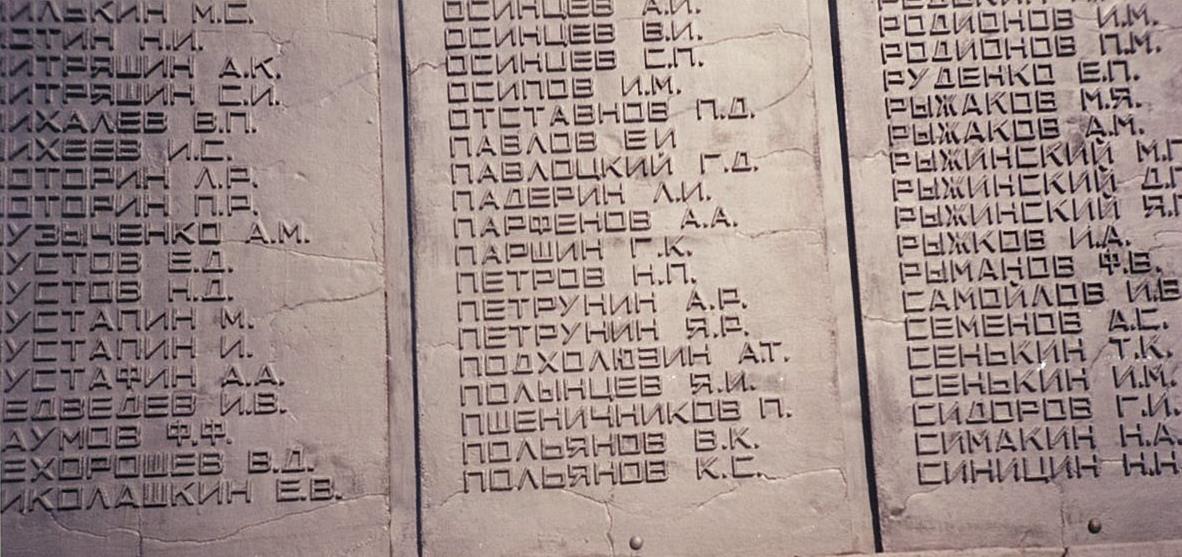 ИЛЬКИН М.С.
СТИН Н.И.
ИТРЯШИН А.К.
ИТРЯШИН С.И.
ИХАЛЕВ В.П.
ИХЕЕВ И.С.
ОТОРИН Л.Р.
ОТОРИН П.Р.
УЗЫЧЕНКО А.М.
УСТОВ Е.Д.
УСТОВ Н.Д.
УСТАПИН М.
УСТАПИН И.
УСТАФИН А.А.
ЕДВЕДЕВ И.В.
АУМОВ Ф.Ф.
ЕХОРОШЕВ В.Д.
ИКОЛАШКИН Е.В.
ОСИНЦЕВ А.И.
ОСИНЦЕВ В.И.
ОСИНЦЕВ С.П.
ОСИПОВ И.М.
ОТСТАВНОВ П.Д.
ПАВЛОВ ЕИ
ПАВЛОЦКИЙ Г.Д.
ПАДЕРИН Л.И.
ПАРФЕНОВ А.А.
ПАРШИН Г.К.
ПЕТРОВ Н.П.
ПЕТРУНИН А.Р.
ПЕТРУНИН Я.Р.
ПОДХОЛЮЗИН А.Т.
ПОЛЫНЦЕВ Я.И.
ПШЕНИЧНИКОВ П.
ПОЛЬЯНОВ В.К.
ПОЛЬЯНОВ К.С.
РОДИОНОВ И.М.
РОДИОНОВ П.М.
РУДЕНКО Е.П.
РЫЖАКОВ М.Я.
РЫЖАКОВ А.М.
РЫЖИНСКИЙ М.Г
РЫЖИНСКИЙ Д.Г
РЫЖИНСКИЙ Я.Г
РЫЖКОВ И.А.
РЫМАНОВ Ф.В.
САМОЙЛОВ И.В
СЕМЕНОВ А.С.
СЕНЬКИН Т.К.
СЕНЬКИН И.М.
СИДОРОВ Г.И.
СИМАКИН Н.А.
СИНИЦИН Н.Н